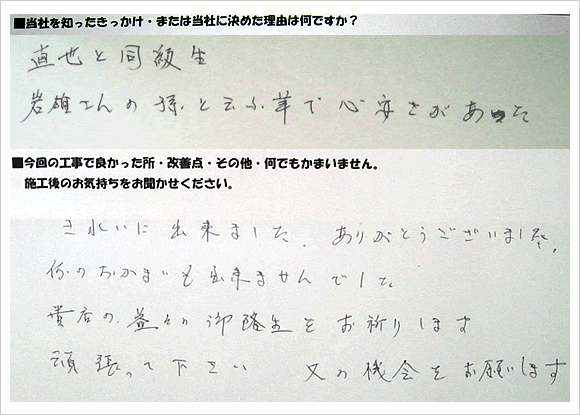 ■当社を知ったきっかけ・または当社に決めた理由は何ですか?
直也と同級生
岩雄さんの孫と云ふ事で心安さがあった
■今回の工事で良かった所・改善点・その他・何でもかまいません。
施工後のお気持ちをお聞かせください。
きれいに出来ました。ありがとうございました。
何のおかまいも出来ませんでした
貴店の益々の御隆盛をお祈りします
頑張って下さい 又の機会をお願いします